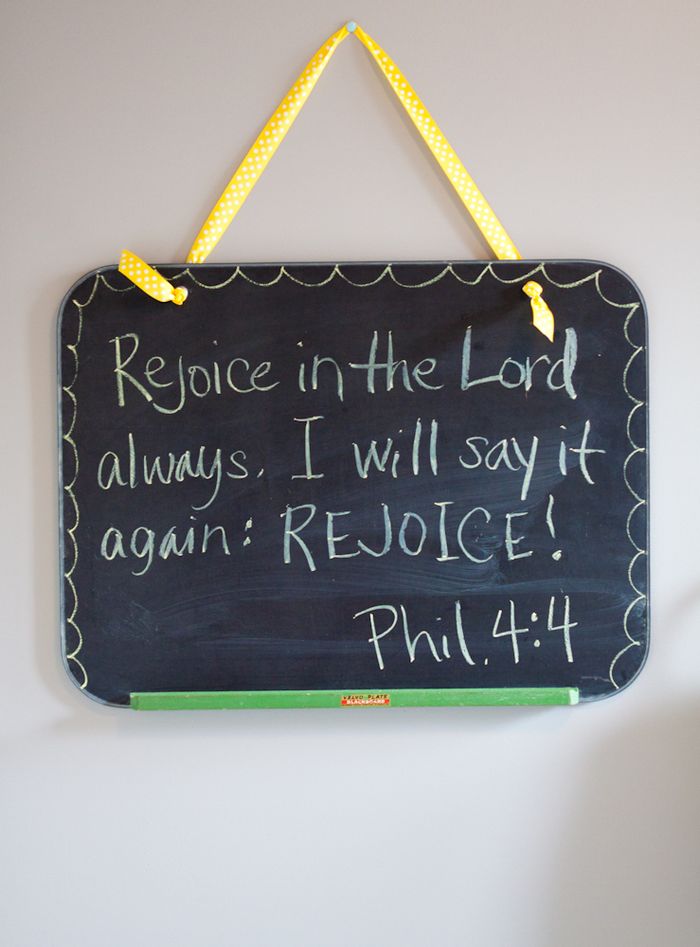 Rejoice in the Lord
always. I will say it
again: REJOICE!
Phil. 4:4
VELVO-PLATE
BLACKBOARD